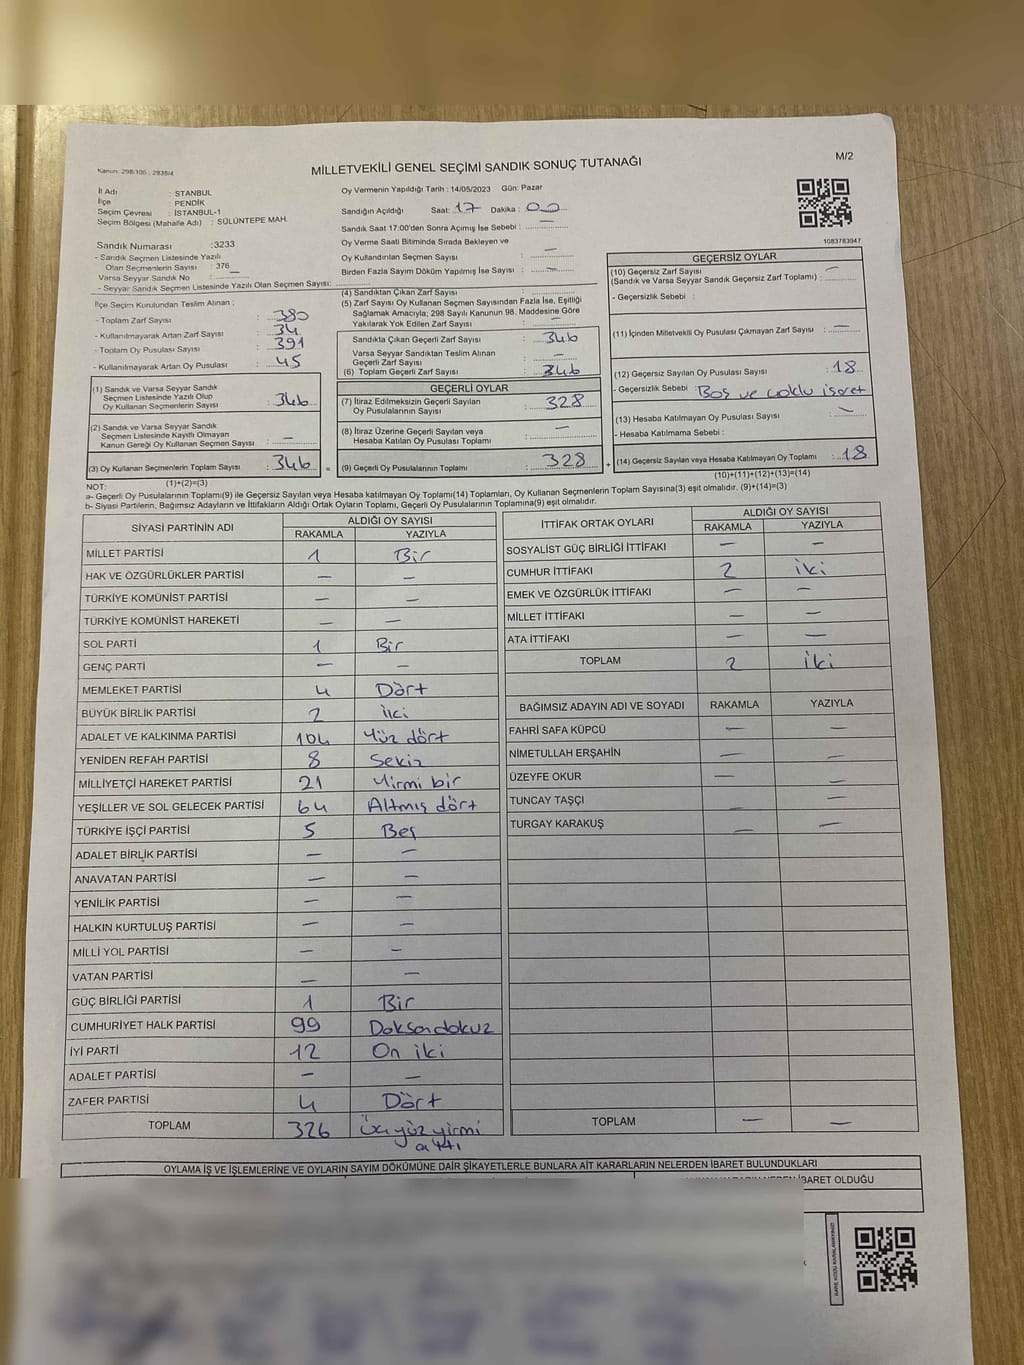 M/2
Kanun: 298/105 , 2839/4
MİLLETVEKİLİ GENEL SEÇİMİ SANDIK SONUÇ TUTANAĞI
İl Adı : STANBUL
İlçe : PENDİK
Seçim Çevresi : İSTANBUL-1
Seçim Bölgesi (Mahalle Adı) : SÜLÜNTEPE MAH.
Sandık Numarası :3233
- Sandık Seçmen Listesinde Yazılı
Olan Seçmenlerin Sayısı : 376
Varsa Seyyar Sandık No : —
- Seyyar Sandık Seçmen Listesinde Yazılı Olan Seçmen Sayısı:
İlçe Seçim Kurulundan Teslim Alınan ;
- Toplam Zarf Sayısı : 380
- Kullanılmayarak Artan Zarf Sayısı : 34
- Toplam Oy Pusulası Sayısı : 391
- Kullanılmayarak Artan Oy Pusulası : 45
(1) Sandık ve Varsa Seyyar Sandık
Seçmen Listesinde Yazılı Olup
Oy Kullanan Seçmenlerin Sayısı : 346
(2) Sandık ve Varsa Seyyar Sandık
Seçmen Listesinde Kayıtlı Olmayan
Kanun Gereği Oy Kullanan Seçmen Sayısı : —
(3) Oy Kullanan Seçmenlerin Toplam Sayısı : 346
(1)+(2)=(3)
Oy Vermenin Yapıldığı Tarih : 14/05/2023 Gün: Pazar
Sandığın Açıldığı Saat: 17 Dakika : 00
Sandık Saat 17:00'den Sonra Açımış İse Sebebi : —
Oy Verme Saati Bitiminde Sırada Bekleyen ve
Oy Kullandırılan Seçmen Sayısı : —
Birden Fazla Sayım Döküm Yapılmış İse Sayısı : —
(4) Sandıktan Çıkan Zarf Sayısı :
(5) Zarf Sayısı Oy Kullanan Seçmen Sayısından Fazla İse, Eşitliği
Sağlamak Amacıyla; 298 Sayılı Kanunun 98. Maddesine Göre
Yakılarak Yok Edilen Zarf Sayısı : —
Sandıkta Çıkan Geçerli Zarf Sayısı : 346
Varsa Seyyar Sandıktan Teslim Alınan
Geçerli Zarf Sayısı : —
(6) Toplam Geçerli Zarf Sayısı : 346
GEÇERLİ OYLAR
(7) İtiraz Edilmeksizin Geçerli Sayılan
Oy Pusulalarının Sayısı : 328
(8) İtiraz Üzerine Geçerli Sayılan veya
Hesaba Katılan Oy Pusulası Toplamı : —
= (9) Geçerli Oy Pusulalarının Toplamı : 328
1083783947
GEÇERSİZ OYLAR
(10) Geçersiz Zarf Sayısı —
(Sandık ve Varsa Seyyar Sandık Geçersiz Zarf Toplamı) :
- Geçersizlik Sebebi :
(11) İçinden Milletvekili Oy Pusulası Çıkmayan Zarf Sayısı : —
(12) Geçersiz Sayılan Oy Pusulası Sayısı : 18
- Geçersizlik Sebebi : Boş ve çoklu işaret
(13) Hesaba Katılmayan Oy Pusulası Sayısı : —
- Hesaba Katılmama Sebebi :
+ (14) Geçersiz Sayılan veya Hesaba Katılmayan Oy Toplamı : 18
(10)+(11)+(12)+(13)=(14)
NOT:
a- Geçerli Oy Pusulalarının Toplamı(9) ile Geçersiz Sayılan veya Hesaba katılmayan Oy Toplamı(14) Toplamları, Oy Kullanan Seçmenlerin Toplam Sayısına(3) eşit olmalıdır. (9)+(14)=(3)
b- Siyasi Partilerin, Bağımsız Adayların ve İttifakların Aldığı Ortak Oyların Toplamı, Geçerli Oy Pusulalarının Toplamına(9) eşit olmalıdır.
SİYASİ PARTİNİN ADI ALDIĞI OY SAYISI
RAKAMLA YAZIYLA
MİLLET PARTİSİ 1 Bir
HAK VE ÖZGÜRLÜKLER PARTİSİ — —
TÜRKİYE KOMÜNİST PARTİSİ — —
TÜRKİYE KOMÜNİST HAREKETİ — —
SOL PARTİ 1 Bir
GENÇ PARTİ — —
MEMLEKET PARTİSİ 4 Dört
BÜYÜK BİRLİK PARTİSİ 2 iki
ADALET VE KALKINMA PARTİSİ 104 Yüz dört
YENİDEN REFAH PARTİSİ 8 Sekiz
MİLLİYETÇİ HAREKET PARTİSİ 21 Yirmi bir
YEŞİLLER VE SOL GELECEK PARTİSİ 64 Altmış dört
TÜRKİYE İŞÇİ PARTİSİ 5 Beş
ADALET BİRLİK PARTİSİ — —
ANAVATAN PARTİSİ — —
YENİLİK PARTİSİ — —
HALKIN KURTULUŞ PARTİSİ — —
MİLLİ YOL PARTİSİ — —
VATAN PARTİSİ — —
GÜÇ BİRLİĞİ PARTİSİ 1 Bir
CUMHURİYET HALK PARTİSİ 99 Doksandokuz
İYİ PARTİ 12 On iki
ADALET PARTİSİ — —
ZAFER PARTİSİ 4 Dört
TOPLAM 326 Üçyüzyirmi
altı
İTTİFAK ORTAK OYLARI ALDIĞI OY SAYISI
RAKAMLA YAZIYLA
SOSYALİST GÜÇ BİRLİĞİ İTTİFAKI — —
CUMHUR İTTİFAKI 2 iki
EMEK VE ÖZGÜRLÜK İTTİFAKI — —
MİLLET İTTİFAKI — —
ATA İTTİFAKI — —
TOPLAM 2 iki
BAĞIMSIZ ADAYIN ADI VE SOYADI RAKAMLA YAZIYLA
FAHRİ SAFA KÜPCÜ — —
NİMETULLAH ERŞAHİN — —
ÜZEYFE OKUR — —
TUNCAY TAŞÇI — —
TURGAY KARAKUŞ — —
TOPLAM — —
OYLAMA İŞ VE İŞLEMLERİNE VE OYLARIN SAYIM DÖKÜMÜNE DAİR ŞİKAYETLERLE BUNLARA AİT KARARLARIN NELERDEN İBARET BULUNDUKLARI
İBARET OLDUĞU